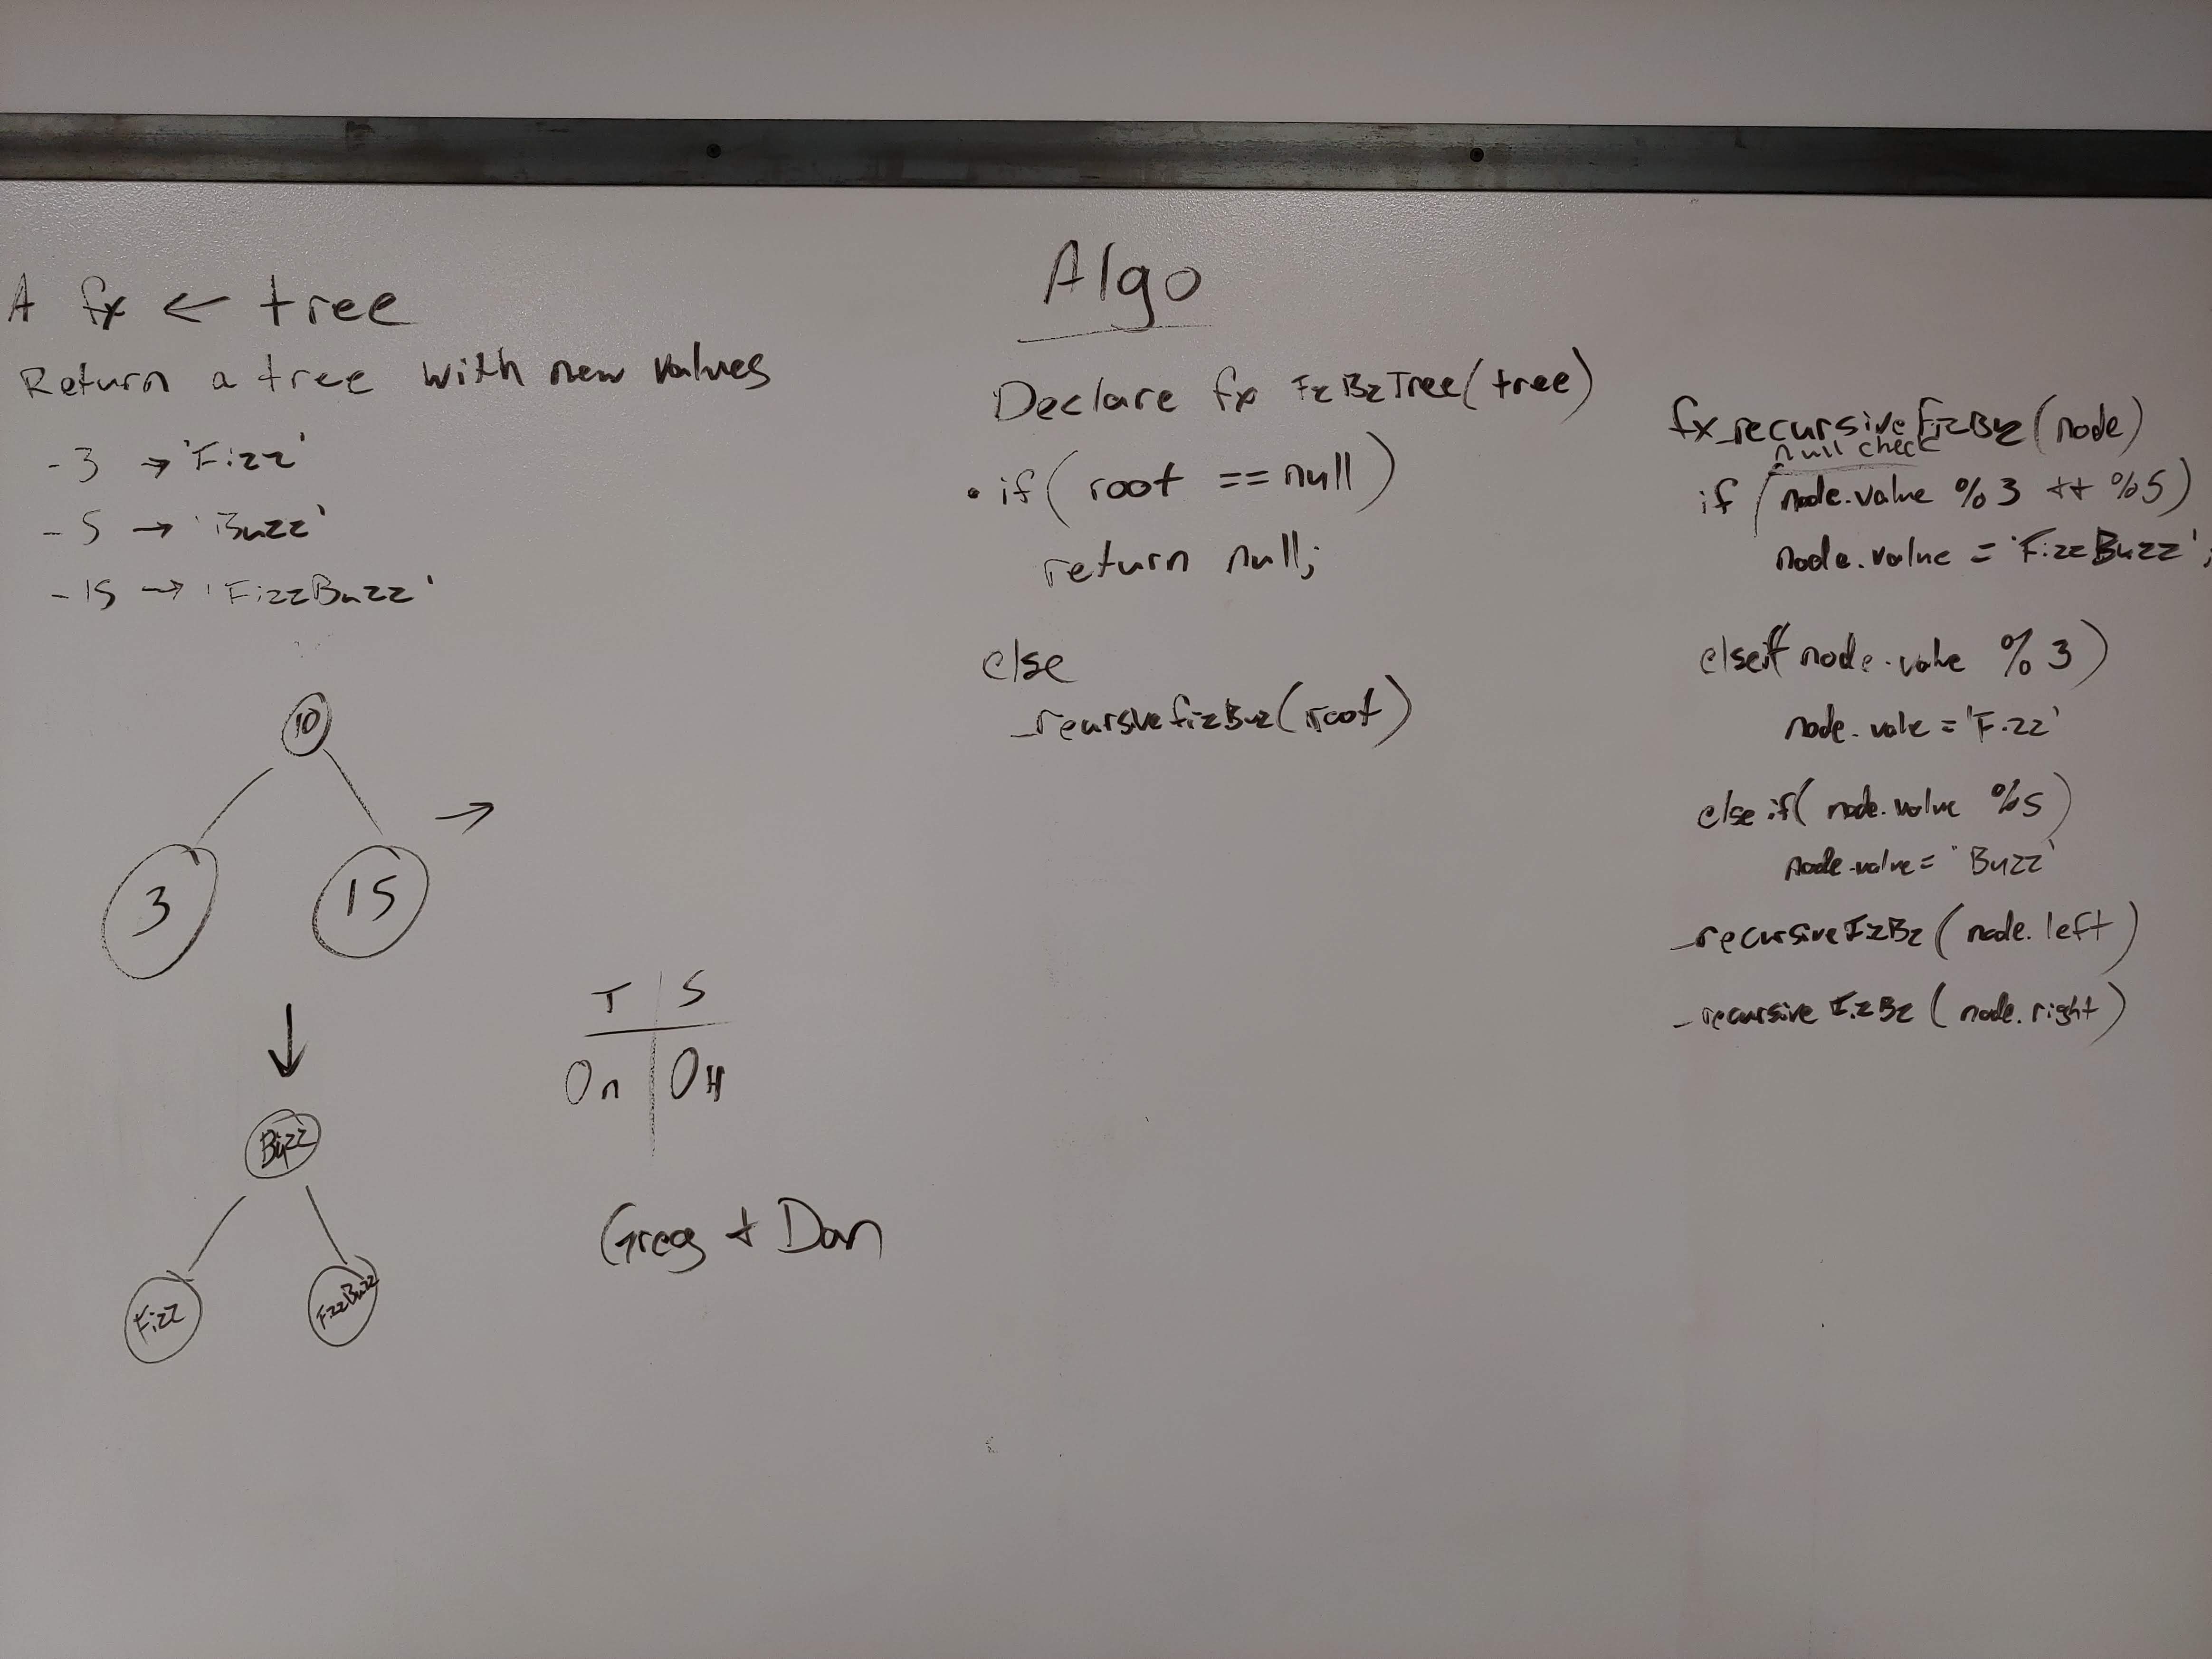 A fx ← tree
Return a tree with new values
-3 → 'Fizz'
-5 → 'Buzz'
-15 → 'FizzBuzz'
10
3 15
→
↓
Buzz
Fizz FizzBuzz
T S
On OH
Greg + Dan
Algo
Declare fx FzBzTree(tree)
• if (root == null)
return null;
else
_recursiveFizBuz(root)
fx _recursiveFizBuz(node)
null check
if (node.value %3 ++ %5)
node.value = 'FizzBuzz';
elseif node.value %3)
node.vale = 'Fizz'
else if( node.value %5)
node.value = 'Buzz'
_recursiveFzBz(node.left)
_recursive FizBz (node.right)